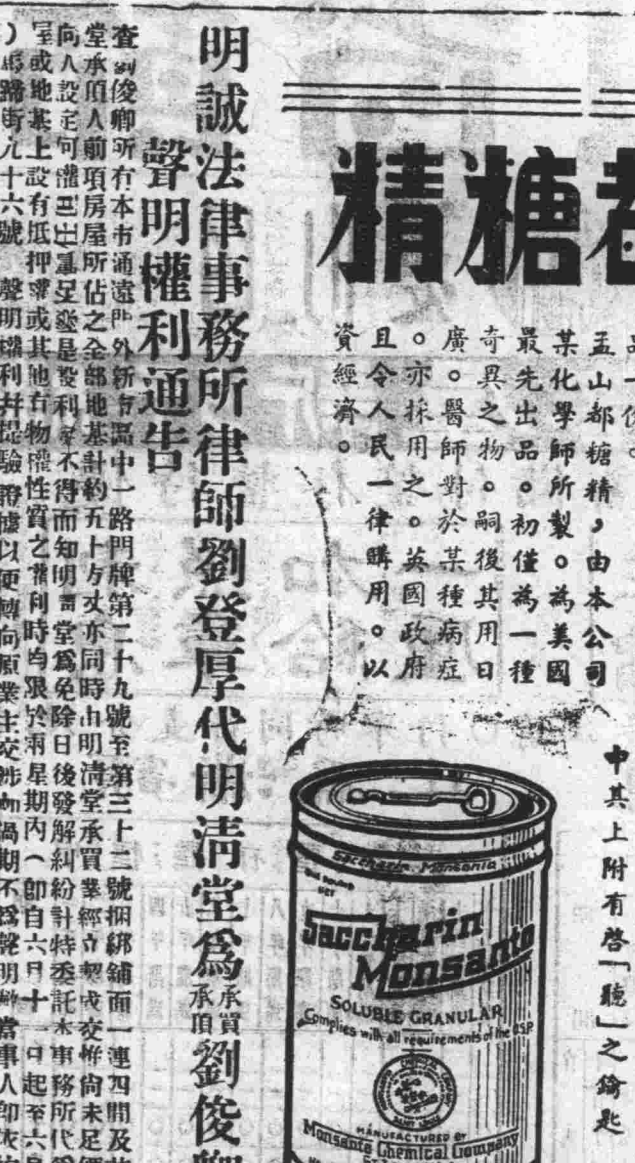 都糖精
品一份。
孟山都糖精，由本公司
某化學師所製。為美國
最先出品。初僅為一種
奇異之物。嗣後其用日
廣。醫師對於某種病症
。亦採用之。英國政府
且令人民一律購用。以
資經濟。
中其上附有啓「聽」之鑰匙
Saccharin Monsanto
Saccharin
Monsanto
SOLUBLE GRANULAR
Complies with all requirements of the USP
MANUFACTURED BY
Monsanto Chemical Company
明誠法律事務所律師劉登厚代明淸堂爲承買承頂劉俊卿
聲明權利通告
查劉俊卿所有本市通遠門外新市區中一路門牌第二十九號至第三十二號捆綁舖面一連四間及
堂承頂人前項房屋所佔之全部地基計約五十方丈亦同時由明淸堂承買業經立契成交惟尙未足
向人設定何權
是否利
不得而知明
堂爲免除日後發解糾紛計特委託本事務所代
屋或地基上設有抵押權或其他有物權性質之權利時均限於兩星期內（卽自六月十
日起至六
馬蹄街九十六號
聲明權利幷提驗證據以便轉向原業主交涉如過期不爲聲明
當事人卽依